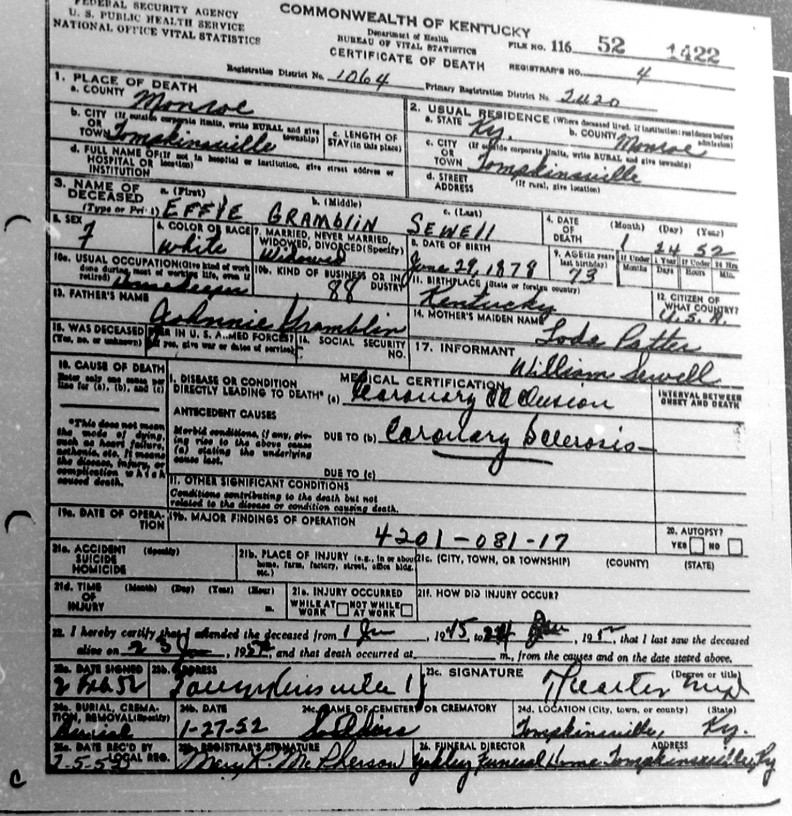 FEDERAL SECURITY AGENCY
U. S. PUBLIC HEALTH SERVICE
NATIONAL OFFICE VITAL STATISTICS
COMMONWEALTH OF KENTUCKY
Department of Health
BUREAU OF VITAL STATISTICS
CERTIFICATE OF DEATH
FILE NO. 116 52 1422
REGISTRAR'S NO. 4
Registration District No. 1064 Primary Registration District No. 2420
1. PLACE OF DEATH
a. COUNTY Monroe
b. CITY (If outside corporate limits, write RURAL and give township)
OR TOWN Tompkinsville
c. LENGTH OF STAY (in this place)
d. FULL NAME OF (If not in hospital or institution, give street address or location)
HOSPITAL OR INSTITUTION
2. USUAL RESIDENCE (Where deceased lived. If institution: residence before admission)
a. STATE Ky. b. COUNTY Monroe
c. CITY (If outside corporate limits, write RURAL and give township)
OR TOWN Tompkinsville
d. STREET ADDRESS (If rural, give location)
3. NAME OF DECEASED (Type or Print)
a. (First) b. (Middle) c. (Last)
EFFIE GRAMBLIN SEWELL
4. DATE OF DEATH (Month) (Day) (Year)
1 24 52
5. SEX
F
6. COLOR OR RACE
White
7. MARRIED, NEVER MARRIED, WIDOWED, DIVORCED (Specify)
Widowed
8. DATE OF BIRTH
June 29, 1878
9. AGE (In years last birthday)
73
If Under 1 Year Months Days
If Under 24 Hrs. Hours Min.
10a. USUAL OCCUPATION (Give kind of work done during most of working life, even if retired)
10b. KIND OF BUSINESS OR INDUSTRY
88
11. BIRTHPLACE (State or foreign country)
Kentucky
12. CITIZEN OF WHAT COUNTRY?
U.S.A.
13. FATHER'S NAME
Johnnie Gramblin
14. MOTHER'S MAIDEN NAME
Patter
15. WAS DECEASED EVER IN U. S. ARMED FORCES?
(Yes, no, or unknown) (If yes, give war or dates of service)
16. SOCIAL SECURITY NO.
17. INFORMANT
William Sewell
18. CAUSE OF DEATH
Enter only one cause per line for (a), (b), and (c)
*This does not mean the mode of dying, such as heart failure, asthenia, etc. It means the disease, injury, or complication which caused death.
MEDICAL CERTIFICATION
I. DISEASE OR CONDITION DIRECTLY LEADING TO DEATH* (a) Coronary Occlusion
ANTECEDENT CAUSES
Morbid conditions, if any, giving rise to the above cause (a) stating the underlying cause last.
DUE TO (b) Coronary Sclerosis
DUE TO (c)
INTERVAL BETWEEN ONSET AND DEATH
II. OTHER SIGNIFICANT CONDITIONS
Conditions contributing to the death but not related to the disease or condition causing death.
19a. DATE OF OPERATION
19b. MAJOR FINDINGS OF OPERATION
4201-081-17
20. AUTOPSY?
YES NO
21a. ACCIDENT SUICIDE HOMICIDE (Specify)
21b. PLACE OF INJURY (e.g., in or about home, farm, factory, street, office bldg. etc.)
21c. (CITY, TOWN, OR TOWNSHIP) (COUNTY) (STATE)
21d. TIME OF INJURY (Month) (Day) (Year) (Hour) m.
21e. INJURY OCCURRED
WHILE AT WORK NOT WHILE AT WORK
21f. HOW DID INJURY OCCUR?
22. I hereby certify that I attended the deceased from 1 Jan, 1945 to 24 Jan, 1952, that I last saw the deceased
alive on 23 Jan, 1952, and that death occurred at m., from the causes and on the date stated above.
23a. DATE SIGNED
2 Feb 52
23b. ADDRESS
Tompkinsville
23c. SIGNATURE (Degree or title)
24a. BURIAL, CREMATION, REMOVAL (Specify)
Burial
24b. DATE
1-27-52
24c. NAME OF CEMETERY OR CREMATORY
24d. LOCATION (City, town, or county) (State)
Tompkinsville, Ky.
25a. DATE REC'D BY LOCAL REG.
2-5-52
25b. REGISTRAR'S SIGNATURE
Mary R. McPherson
26. FUNERAL DIRECTOR ADDRESS
Yokley Funeral Home Tompkinsville, Ky